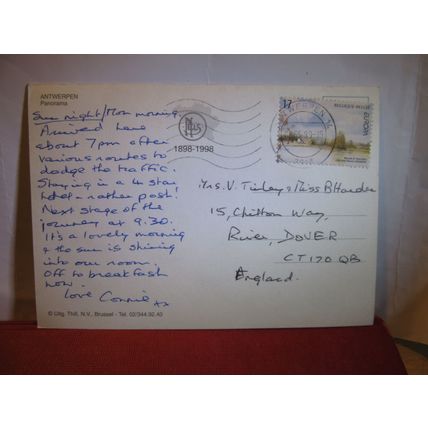 ANTWERPEN
Panorama
Sun night/Mon morning.
Arrived here
about 7pm after
various routes to
dodge the traffic.
Staying in a 4 star
hotel - rather posh!
Next stage of the
journey at 9.30.
It's a lovely morning
& the sun is shining
into our room.
Off to breakfast
now.
Love Connie xx
© Uitg. Thill, N.V., Brussel - Tel. 02/344.92.43
1898-1998
17
BELGIQUE-BELGIË
EUROPA
Mrs. V. Tinley & Miss B Harden
15, Chilton Way,
River, DOVER
CT17 0QB
England.